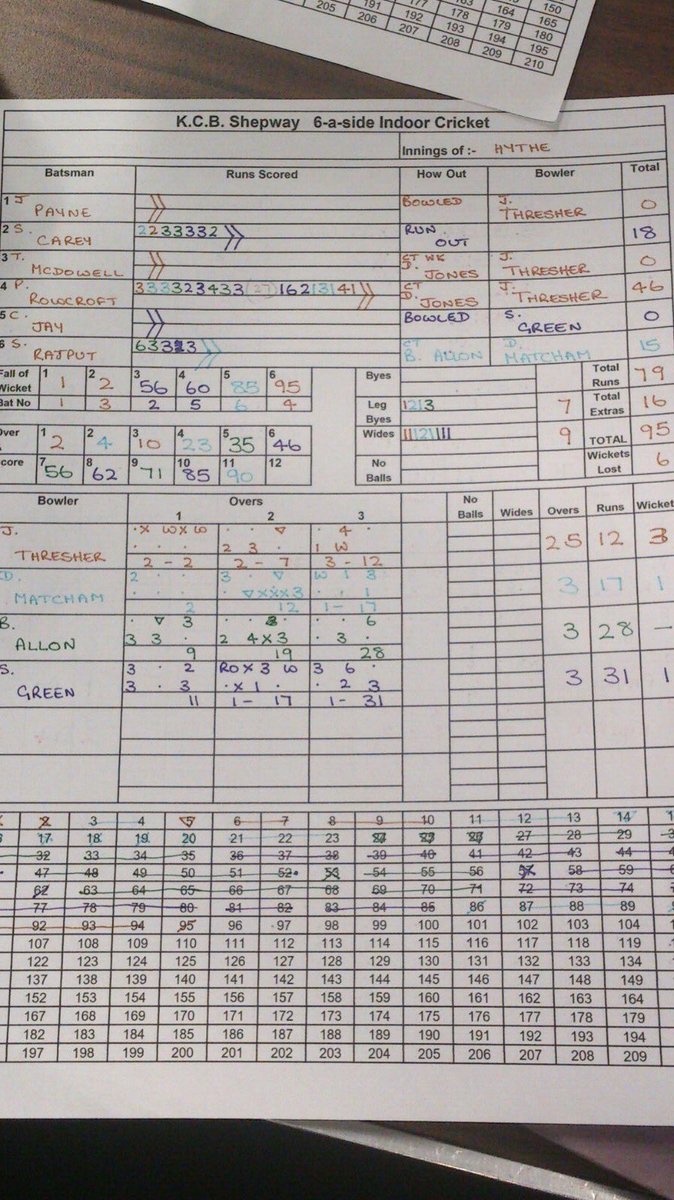 191 177 163 150
205 192 178 164 165
206 193 179 180
207 194 195
208 209 210
K.C.B. Shepway 6-a-side Indoor Cricket
Innings of :- HYTHE
Batsman Runs Scored How Out Bowler Total
1 J PAYNE BOWLED J. THRESHER 0
2 S. CAREY 22333332 RUN OUT 18
3 T. MCDOWELL CT WK D. JONES J. THRESHER 0
4 P. ROWCROFT 3333323433 (27) 16213141 CT D. JONES J. THRESHER 46
5 C. JAY BOWLED S. GREEN 0
6 S. RAJPUT CT B. ALLON D. MATCHAM 15
Fall of Wicket 1 1 2 2 3 56 4 60 5 85 6 95
Bat No 1 3 2 5 6 4
Byes Total Runs 79
Leg Byes 1213 7 Total Extras 16
Over 1 2 2 4 3 10 4 23 5 35 6 46
Wides 9 TOTAL 95
score 7 56 8 62 9 71 10 85 11 90 12
No Balls Wickets Lost 6
Bowler Overs No Balls Wides Overs Runs Wicket
1 2 3
J. THRESHER 25 12 3
· X W X W · · ▽ · 4 ·
· · · 2 3 · 1 W
2 - 2 2 - 7 3 - 12
D. MATCHAM 3 17 1
2 · · 3 · ▽ W 1 3
· · · · ▽XXX3 · · 1
2 12 1 - 17
B. ALLON 3 28 —
· ▽ 3 · 8 · · · 6
3 3 · 2 4X3 · 3 ·
9 19 28
S. GREEN 3 31 1
3 · 2 RO X 3 W 3 6 ·
3 · 3 · X 1 · · 2 3
11 1 - 17 1 - 31
2 3 4 5 6 7 8 9 10 11 12 13 14
17 18 19 20 21 22 23 24 25 26 27 28 29
32 33 34 35 36 37 38 39 40 41 42 43 44
47 48 49 50 51 52 53 54 55 56 57 58 59
62 63 64 65 66 67 68 69 70 71 72 73 74
77 78 79 80 81 82 83 84 85 86 87 88 89
92 93 94 95 96 97 98 99 100 101 102 103 104
107 108 109 110 111 112 113 114 115 116 117 118 119
122 123 124 125 126 127 128 129 130 131 132 133 134
137 138 139 140 141 142 143 144 145 146 147 148 149
152 153 154 155 156 157 158 159 160 161 162 163 164
167 168 169 170 171 172 173 174 175 176 177 178 179
182 183 184 185 186 187 188 189 190 191 192 193 194
197 198 199 200 201 202 203 204 205 206 207 208 209